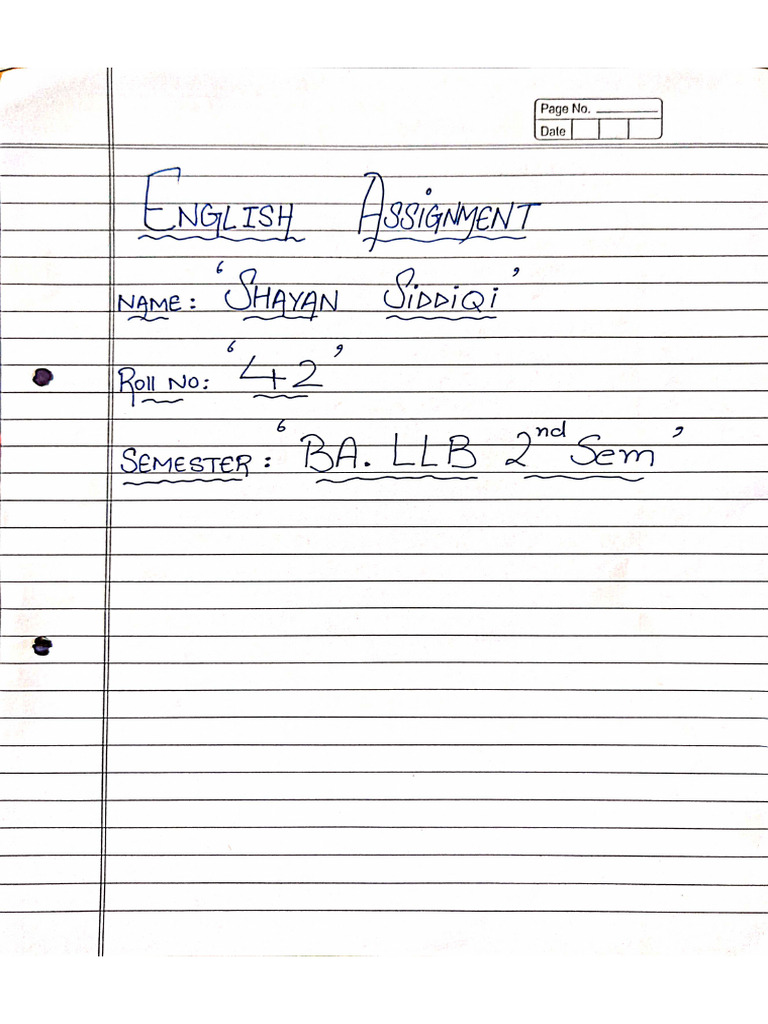 Page No.
Date
ENGLISH ASSIGNMENT
NAME: ‘SHAYAN SIDDIQI’
ROll NO: ‘42’
SEMESTER: ‘BA. LLB 2nd Sem’